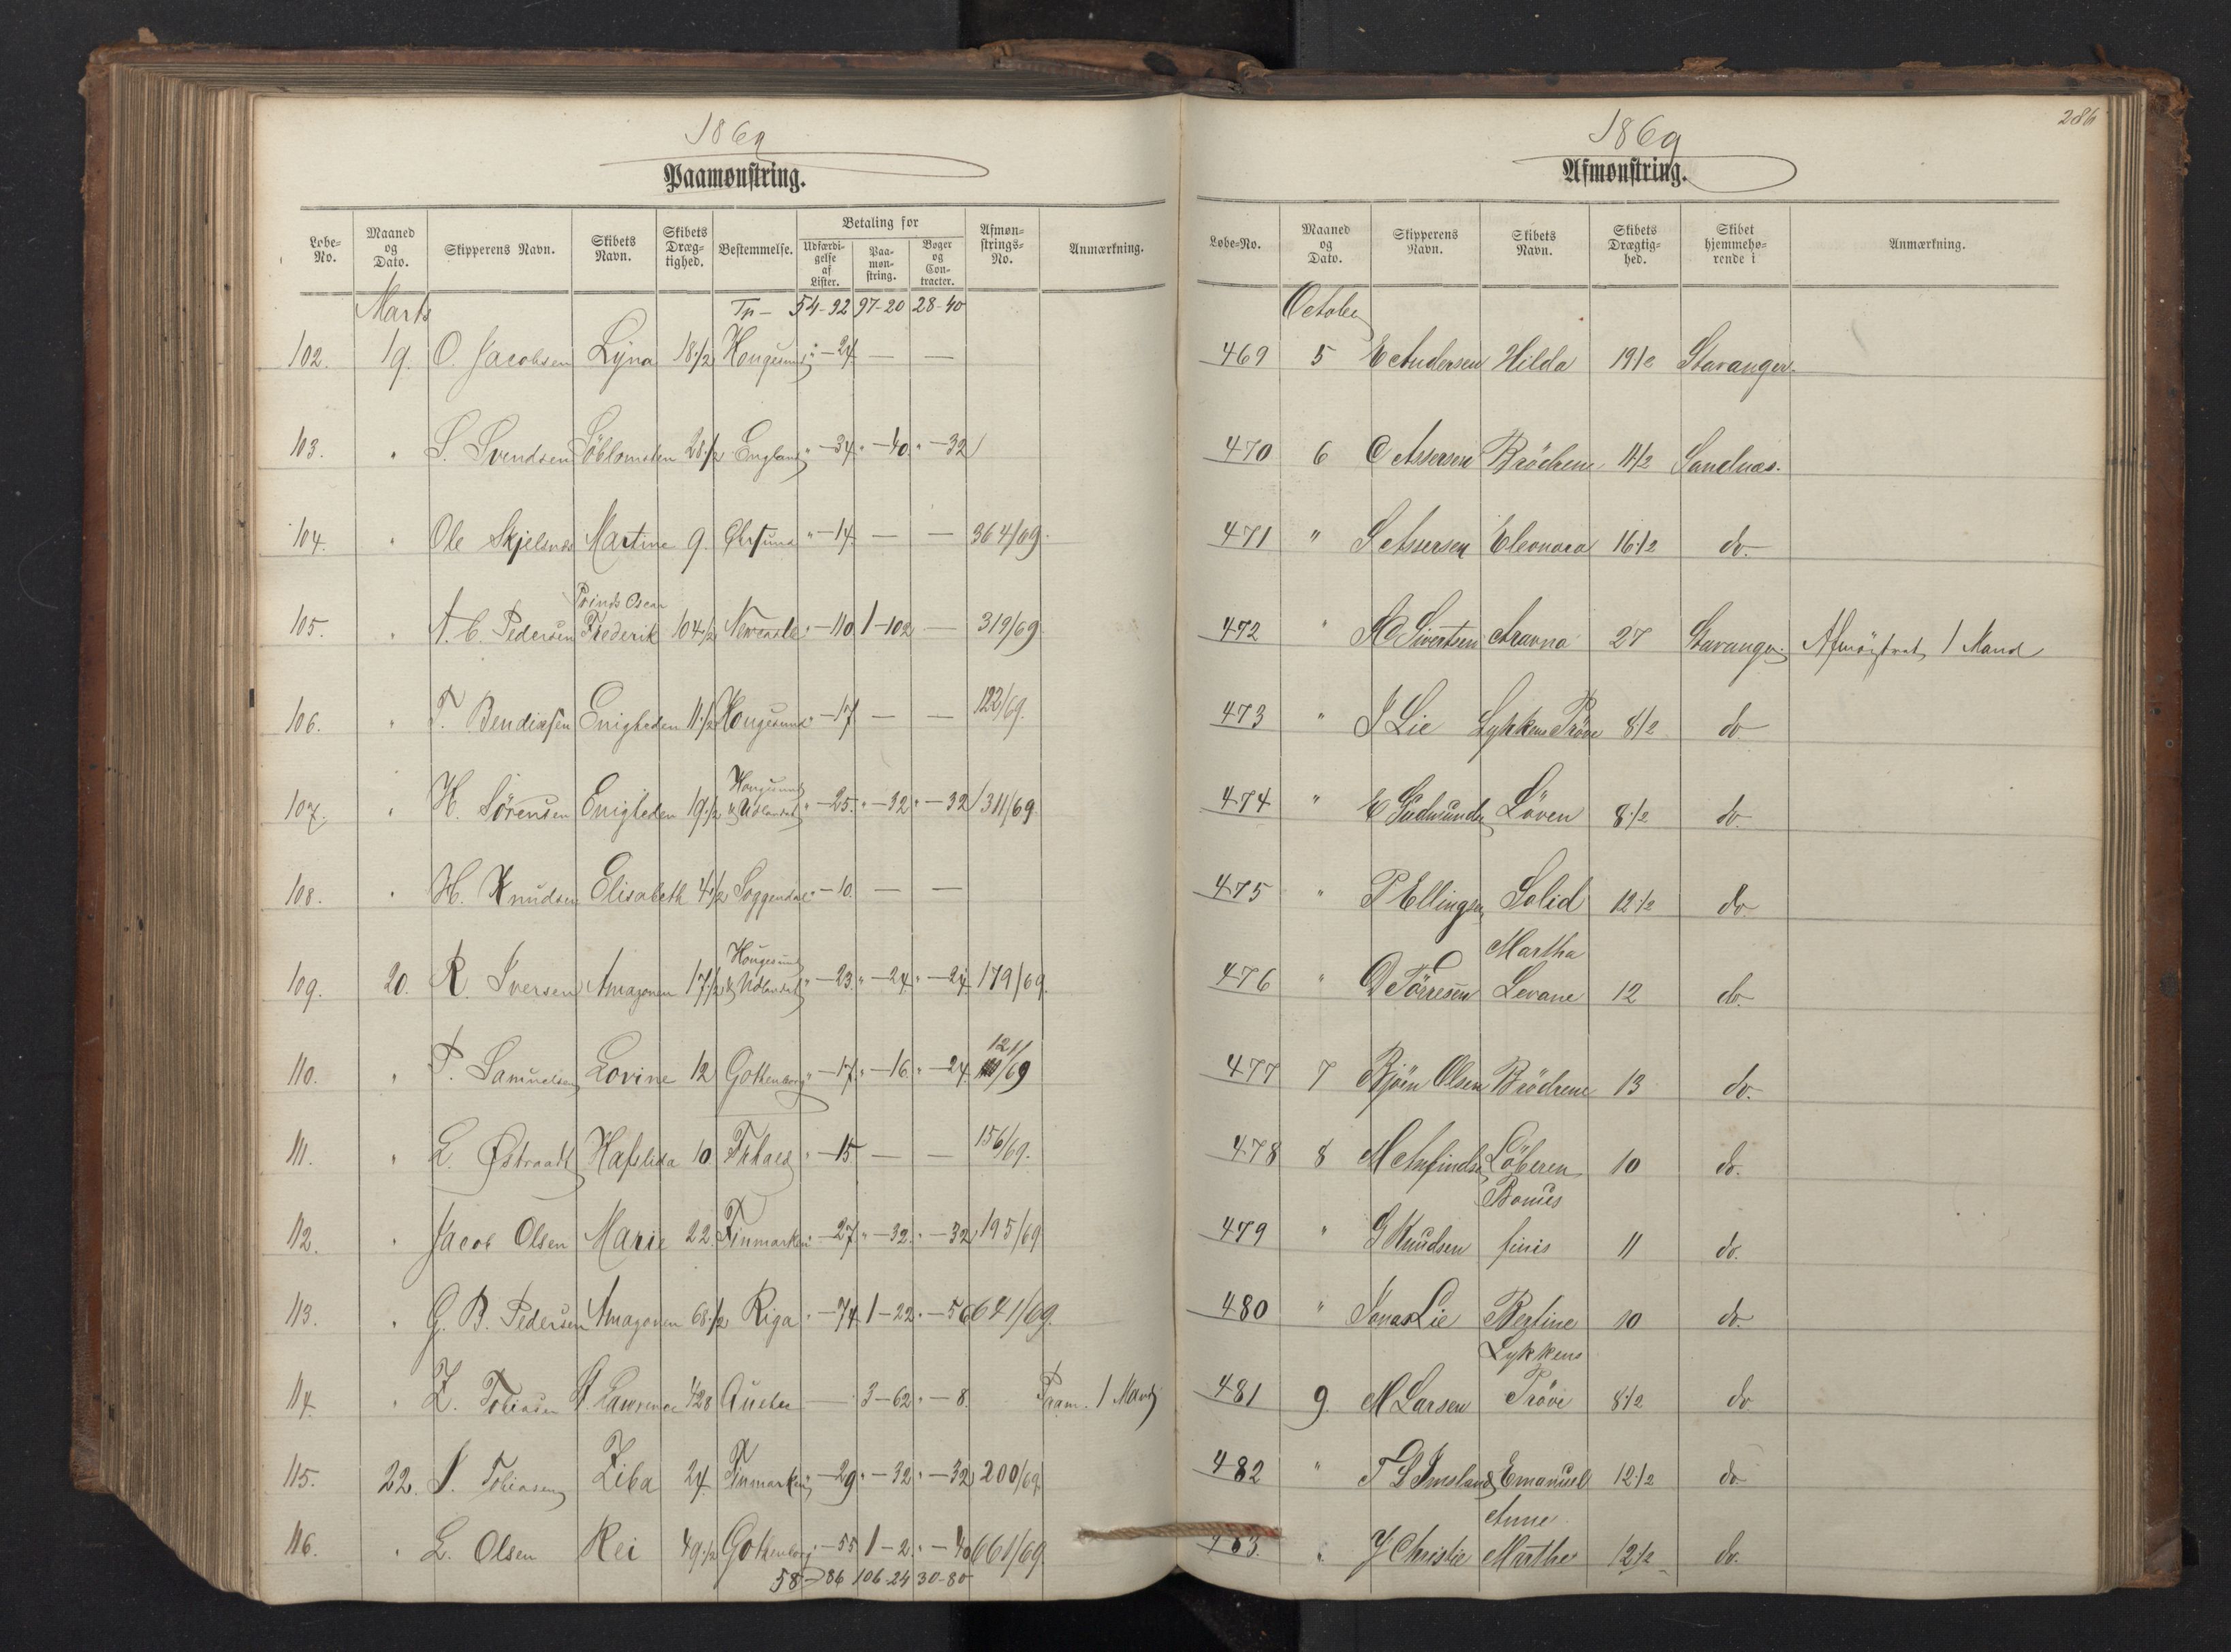 1869
Paamønstring.
Løbe-No. Maaned og Dato. Skipperens Navn. Skibets Navn. Skibets Dræg-tighed. Bestemmelse. Betaling for Udfærdi-gelse af Lister. Paa-møn-string. Bøger og Con-tracter. Afmøn-strings-No. Anmærkning.
Marts Tp - 54-92 97-20 28-40
102. 19. O. Jacobsen Lyna 18 1/2 Hougesund " - 24 — —
103. " S. Svendsen Söblomsten 28 1/2 England " - 34 " - 40 " - 32
104. " Ole Skjelsnes Martine 9. " - 14. — — 364/69.
105. " A. C. Pedersen Prinds Oscar Frederik 104 1/2 Newcastle " - 110 1 - 102 — 319/69
106. " T. Bendixsen Enigheden 11 1/2 Hougesund " - 17 — — 122/69.
107. " H. Sörensen Enigheden 19 1/2 Hougesund & Udlandet " - 25. " - 32 " - 32 311/69.
108. " H. Knudsen Elisabeth 4 1/2 Soggendal " - 10. — —
109. 20. R. Iversen Amazonen 17 1/2 Hougesund & Udlandet " - 23. " - 24 " - 24 179/69.
110. " P. Samuelsen Lovine 12 Gothenborg " - 17. " - 16 " - 24 121/69
111. " L. Østraadt Hafslida 10 " - 15 — — 156/69.
112. " Jacob Olsen Marie 22. Finmarken " - 27 " - 32. " - 32 195/69
113. " G. B. Pedersen Amazonen 68 1/2 Riga " - 74 1 - 22 " - 56 641/69.
114. " Z. Tobiasen St. Lawrence 428 Quebec — 3 - 62 " - 8. Paam. 1 Mand
115. 22. J. Tobiasen Ziba 24. Finmarken " - 29 " - 32 " - 32 200/69.
116. " L. Olsen Rei 49 1/2 Gothenborg " - 55 1 - 2. " - 40 661/69
58 - 86 106-24 30-80
286
1869
Afmønstring.
Løbe-No. Maaned og Dato. Skipperens Navn. Skibets Navn. Skibets Drægtig-hed. Skibet hjemmehø-rende i Anmærkning.
October
469 5 E Andersen Hilda 19 1/2 Stavanger.
470 6 O Assersen Brödrene 11 1/2 Sandnæs.
471 " S Assersen Eleonora 16 1/2 do.
472 " Sivertsen 27 Stavanger. Afmönstret 1 Mand
473 " J Lie Lykkens Pröve 8 1/2 do
474 " E Gudmunds Löven 8 1/2 do.
475 " P Ellingsen Solid 12 1/2 do
476 " O Törresen Martha Levane 12 do.
477 7 Björn Olsen Brödrene 13 do.
478 8 M Anfindsen Löberen 10 do.
479 " G Knudsen Bonus finis 11 do.
480 " Jonas Lie Bertine 10 do.
481 9. M Larsen Lykkens Pröve 8 1/2 do
482 " T S Imsland Emanuel 12 1/2 do
483. " J Christie Anne Marthe 12 1/2 do.